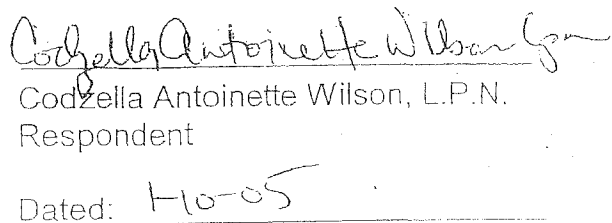 Codzella Antoinette Wilson Lpn
Codzella Antoinette Wilson, L.P.N.
Respondent
Dated: 1-10-05